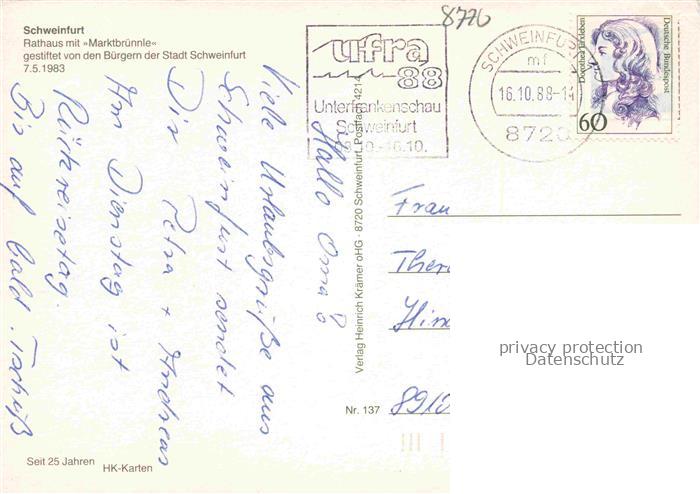 Schweinfurt
Rathaus mit »Marktbrünnle«
gestiftet von den Bürgern der Stadt Schweinfurt
7.5.1983
8720
ufra
88
Unterfrankenschau
Schweinfurt
.10.-16.10.
SCHWEINFU
mf
16.10.88-1
8720
Dorothea Erxleben
Deutsche Bundespost
60
Hallo Oma!
Viele Urlaubsgrüße aus
Schweinfurt sendet
Dir Petra + Andreas
Am Dienstag ist
Rückreisetag.
Bis auf bald. Tschüß
Verlag Heinrich Krämer oHG · 8720 Schweinfurt, Postfach 4214
Frau
There
Hin
Nr. 137
891
privacy protection
Datenschutz
Seit 25 Jahren
HK-Karten